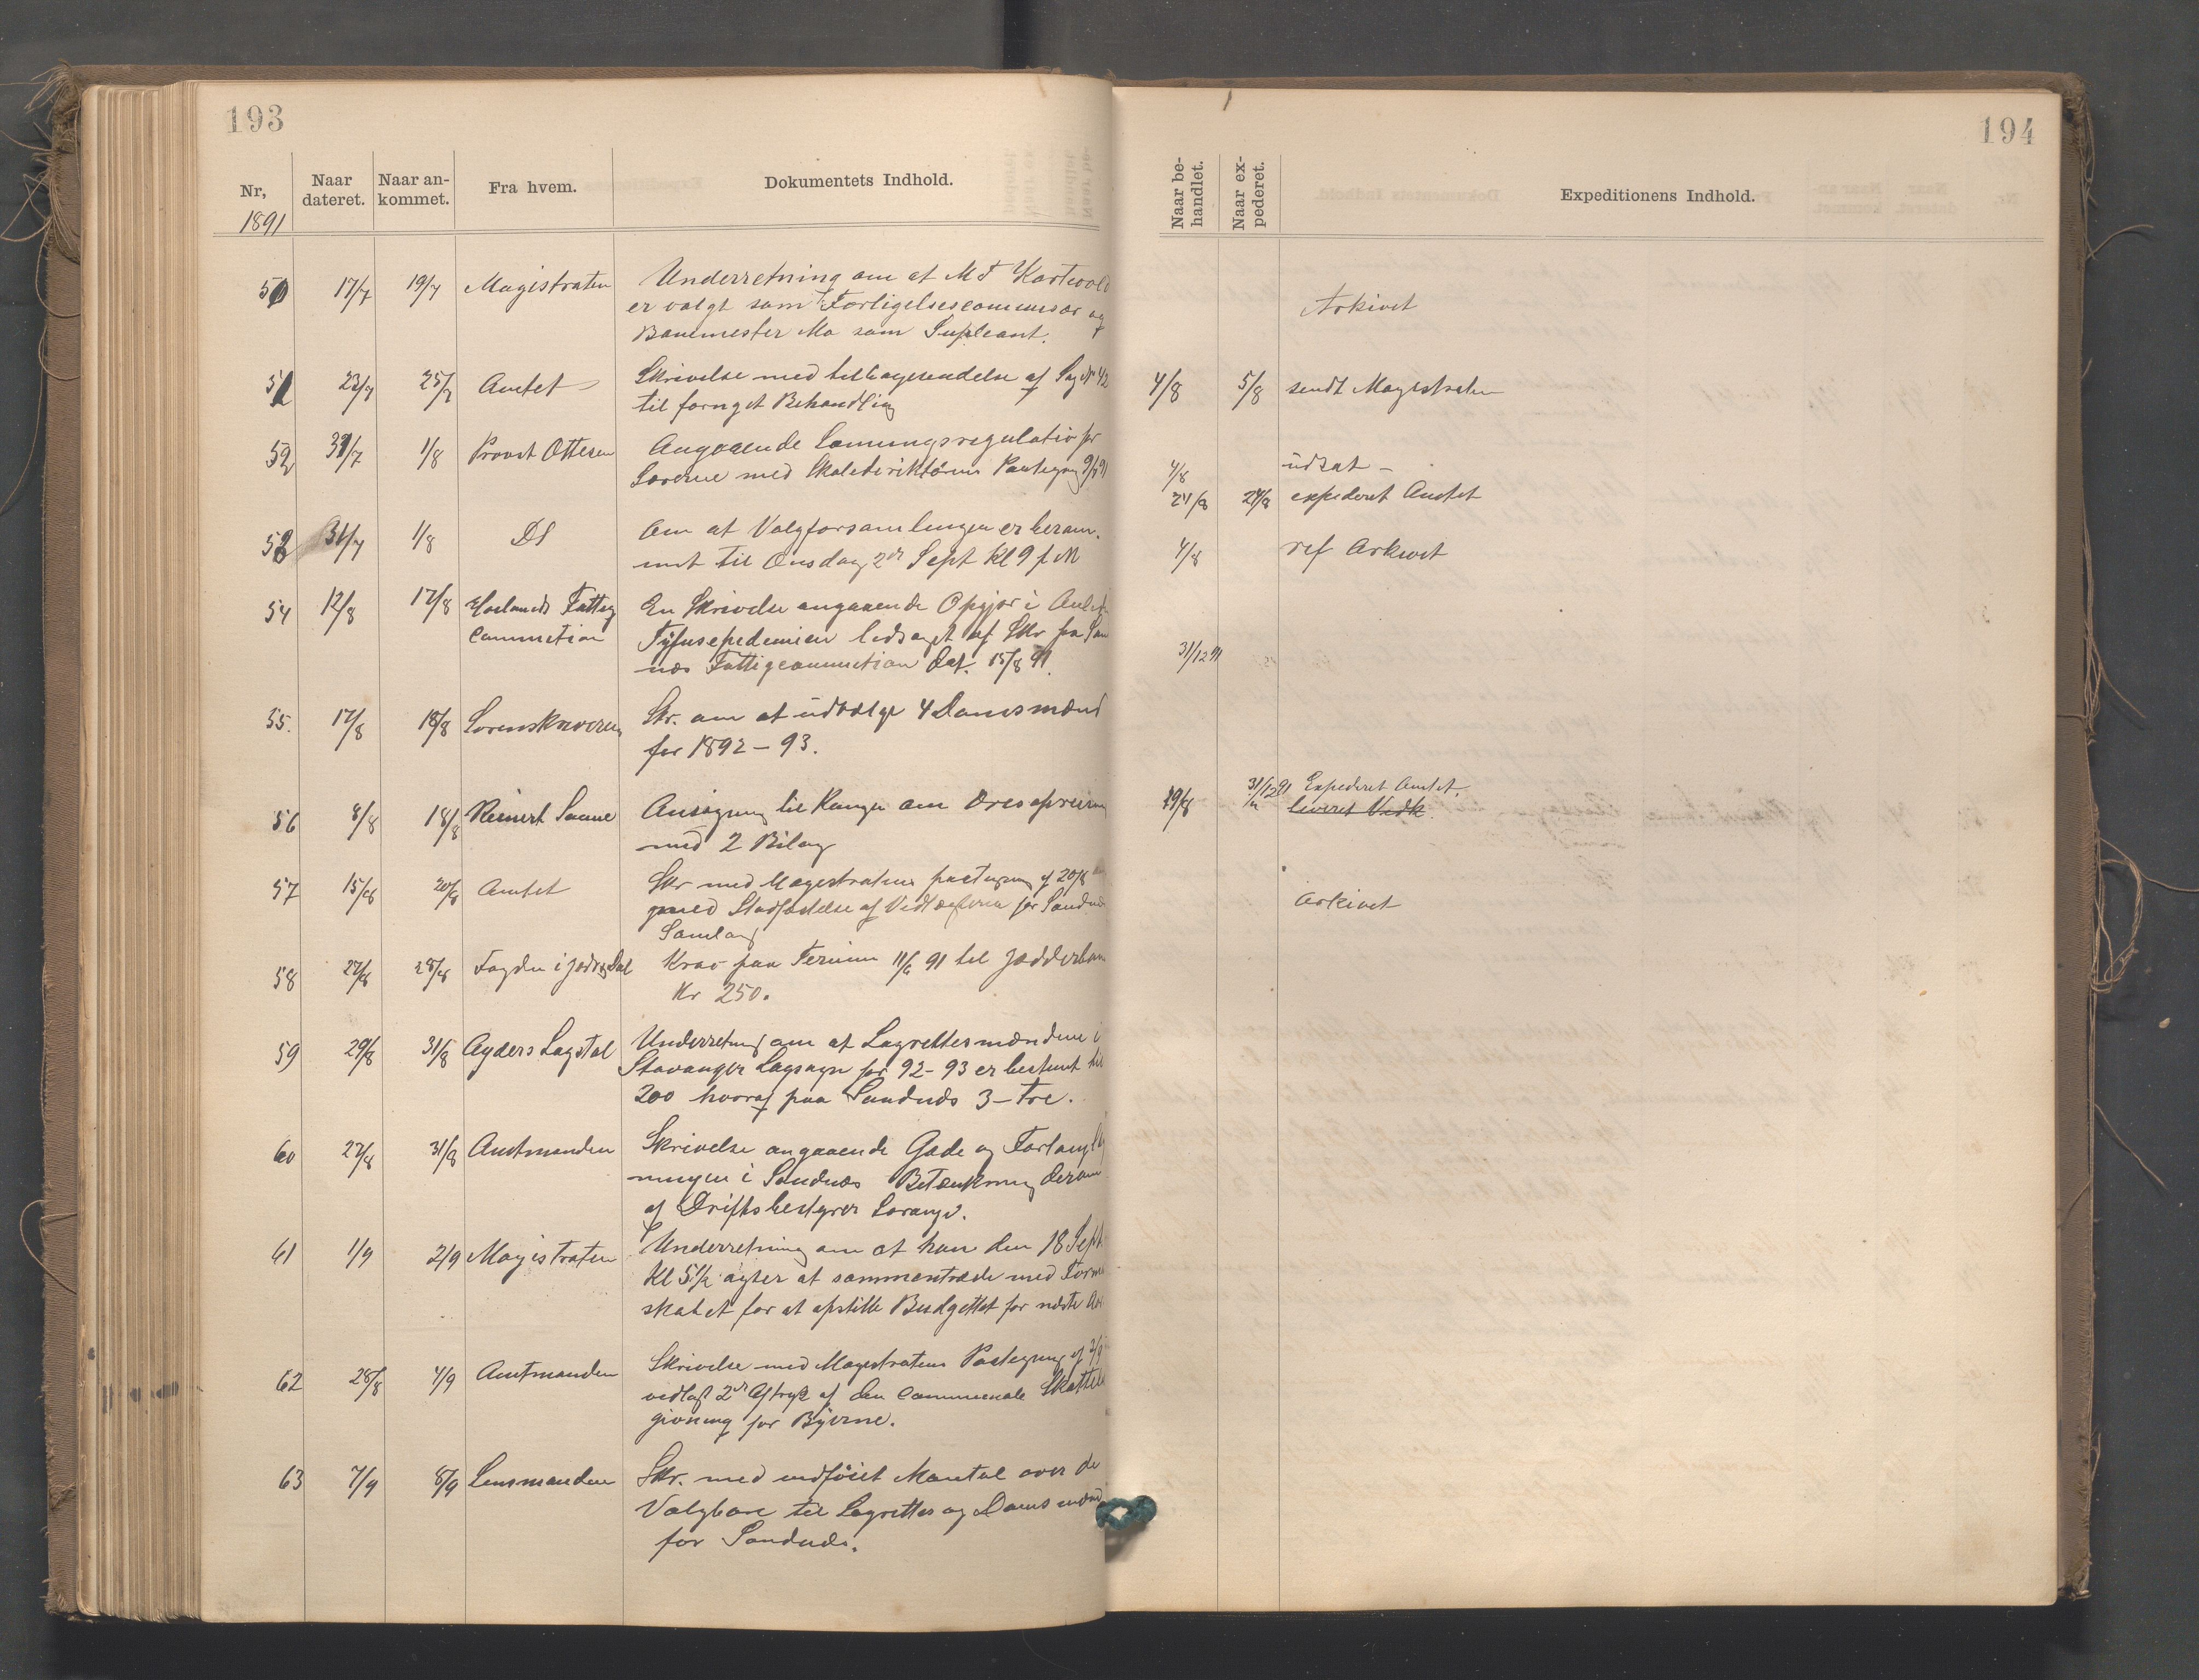 193
Nr,
1891
Naar dateret.
Naar ankommet.
Fra hvem.
Dokumentets Indhold.
50 17/7 19/7 Magistraten Underretning om at M T
er valgt som Forligelsescommisær og
Banemester Mo som Supleant.
51 23/7 25/7 Amtet Skrivelse med tilbagesendelse af Sag No 42
til fornyet Behandling
52 31/7 1/8 Provst Ottesen Angaaende Lønningsregulativ for
Lærerne med Skoledirektørens Paategning 9/7 91
53 31/7 1/8 DS Om at Valgforsamlingen er beram-
met til Onsdag 2den Sept Kl 9 f M
54 12/8 17/8 Høilands Fattig
Commission
En Skrivelse angaaende Opgjør i Anledn
Tyfusepedemien ledsaget af Skr fra San
næs Fattigcommission dat. 15/8 91.
55. 17/8 18/8 Sorenskriveren Skr. om at udvælge 4 Domsmænd
for 1892 – 93.
56 8/8 18/8 Reinert Saune Ansøgning til Kongen om Oreisning
med 2 Bilag
57 15/8 20/8 Amtet Skr med Magistratens paategning af 20/8
med Stadfæstelse af Vedtægterne for Sandnæs
Samlag
58 27/8 28/8 Fogden i Jæd og Dal Krav paa Termin 11/6 91 til Jædderban
Kr 250.
59 29/8 31/8 Agders Lagstol Underretning om at Lagrettesmændene i
Stavanger Lagsogn for 92–93 er bestemt til
200 hvoraf paa Sandnæs 3 – Tre.
60 27/8 31/8 Amtmanden Skrivelse angaaende Gade og
ningen i Sandnæs Betænkning derom
af Driftsbestyrer Lorange.
61 1/9 2/9 Magistraten Underretning om at han den 18 Sept
Kl 5 1/2 agter at sammentræde med Formand
skabet for at opstille Budgettet for næste Aar
62 28/8 4/9 Amtmanden Skrivelse med Magistratens Paategning af 2/9
vedlagt 2det Aftryk af den Communale Skattelov
givning for Byerne.
63 7/9 8/9 Lensmanden Skr. med indføiet Mantal over de
Valgbare til Lagrettes og Domsmænd
for Sandnæs.
194
Naar behandlet.
Naar expederet.
Expeditionens Indhold.
Arkivet
4/8 5/8 sendt Magistraten
4/8 udsat –
24/8 24/8 expederet Amtet
4/8 ref Arkivet
31/12 91
29/8 31/12 91 Expederet Amtet.
leveret Vedk.
Arkivet